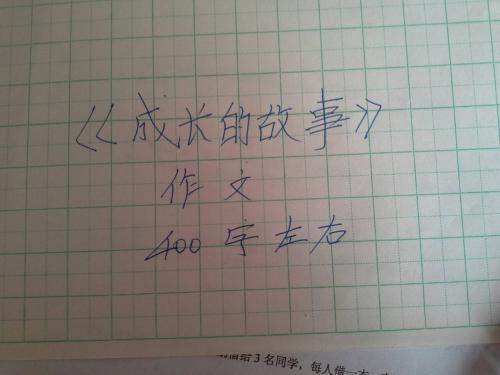 《成长的故事》
作文
400字左右
给3名同学，每人借一本